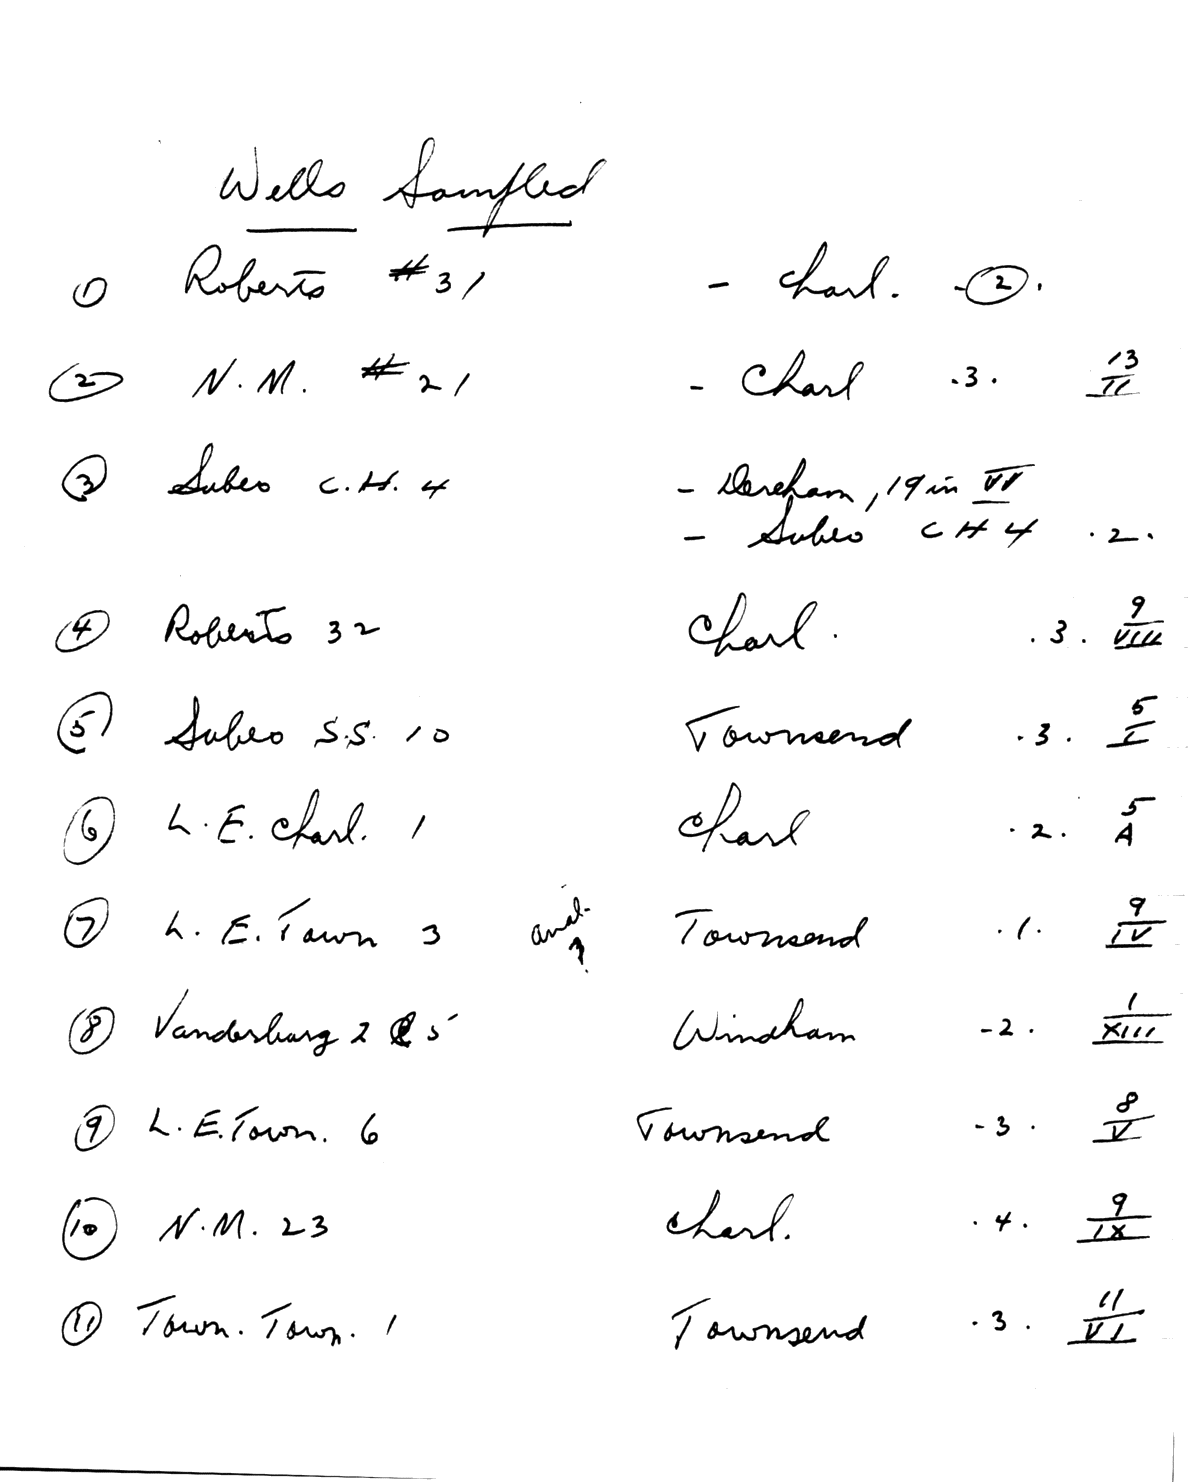 Wells Sampled
① Roberts #31 - Charl. - ② .
② N.M. #21 - Charl .3. 13/II
③ Subeo C.H. 4 - Dereham, 19 in VI
- Subeo CH 4 .2.
④ Roberts 32 Charl. .3. 9/VIII
⑤ Subeo S.S. 10 Townsend .3. 5/I
⑥ L.E. Charl. 1 Charl .2. 5 A
⑦ L.E. Town 3 anal. ? Townsend .1. 9/IV
⑧ Vanderburg 2 5 Windham -2. 1/XIII
⑨ L.E. Town. 6 Townsend -3. 8/V
⑩ N.M. 23 Charl. .4. 9/IX
⑪ Town. Town. 1 Townsend .3. 11/VI